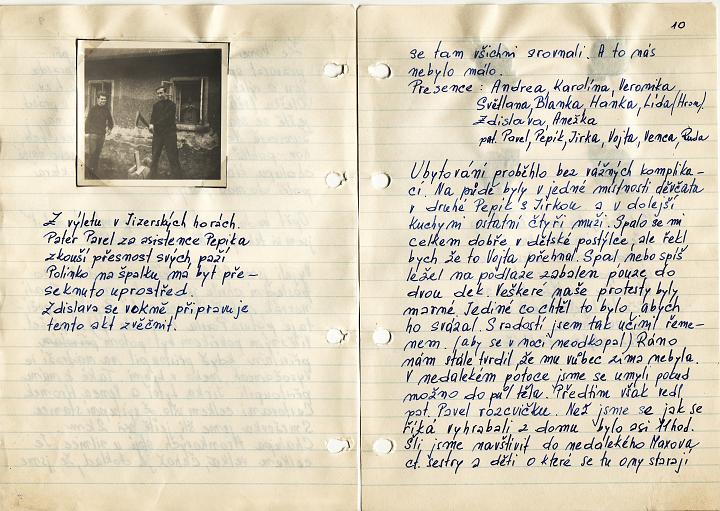 Z výletu v Jizerských horách.
Pater Pavel za asistence Pepika
zkouší přesnost svých paží
Polínko na špalku má byt pře-
seknuto uprostřed.
Zdislava se v okně připravuje
tento akt zvěčnit.
10
se tam všichni srovnali. A to nás
nebylo málo.
Presence: Andrea, Karolína, Veronika,
Světlana, Blanka, Hanka, Lída
Zdislava, Anežka
pat. Pavel, Pepik, Jirka, Vojta, Venca, Ruda
Ubytování proběhlo bez vážných komplika-
cí. Na půdě byly v jedné místnosti děvčata
v druhé Pepik s Jirkou a v dolejší
kuchyni ostatní čtyři muži. Spalo se mi
celkem dobře v dětské postýlce, ale řekl
bych že to Vojta přehnal. Spal, nebo spíš
ležel na podlaze zabalen pouze do
dvou dek. Veškeré naše protesty byly
marné. Jediné co chtěl to bylo, abych
ho svázal. S radostí jsem tak učinil řeme-
nem. (aby se v noci neodkopal) Ráno
nám stále tvrdil, že mu vůbec zima nebyla.
V nedalekém potoce jsme se umyli, pokud
možno do půl těla. Předtím však vedl
pat. Pavel rozcvičku. Než jsme se jak se
říká vyhrabali z domu bylo asi 11 hod.
Šli jsme navštívit do nedalekého Maxova
ct. sestry a děti o které se tu ony starají